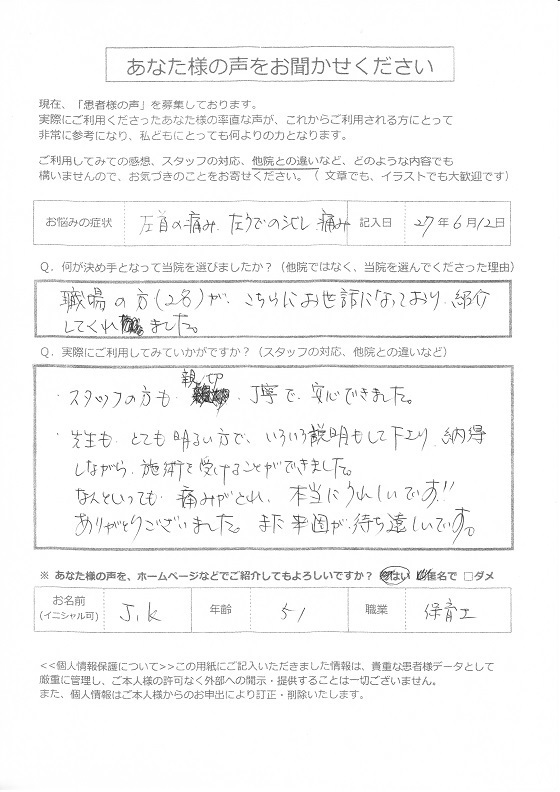 あなた様の声をお聞かせください
現在、「患者様の声」を募集しております。
実際にご利用くださったあなた様の率直な声が、これからご利用される方にとって
非常に参考になり、私どもにとっても何よりの力となります。
ご利用してみての感想、スタッフの対応、他院との違いなど、どのような内容でも
構いませんので、お気づきのことをお寄せください。（ 文章でも、イラストでも大歓迎です）
お悩みの症状 左首の痛み、左うでのシビレ、痛み 記入日 27年6月12日
Ｑ．何が決め手となって当院を選びましたか？（他院ではなく、当院を選んでくださった理由）
職場の方(2名)が、こちらにお世話になっており、紹介
してくれました。
Ｑ．実際にご利用してみていかがですか？（スタッフの対応、他院との違いなど）
・スタッフの方も、親切、丁寧で、安心できました。
・先生も、とても明るい方で、いろいろ説明もして下さり、納得
しながら、施術を受けることができました。
なんといっても、痛みがとれ、本当にうれしいです!!
ありがとうございました。また来週が、待ち遠しいです。
※ あなた様の声を、ホームページなどでご紹介してもよろしいですか？ はい 匿名で □ダメ
お名前 J,K 年齢 51 職業 保育士
(イニシャル可)
<<個人情報保護について>>この用紙にご記入いただきました情報は、貴重な患者様データとして
厳重に管理し、ご本人様の許可なく外部への開示・提供することは一切ございません。
また、個人情報はご本人様からのお申出により訂正・削除いたします。